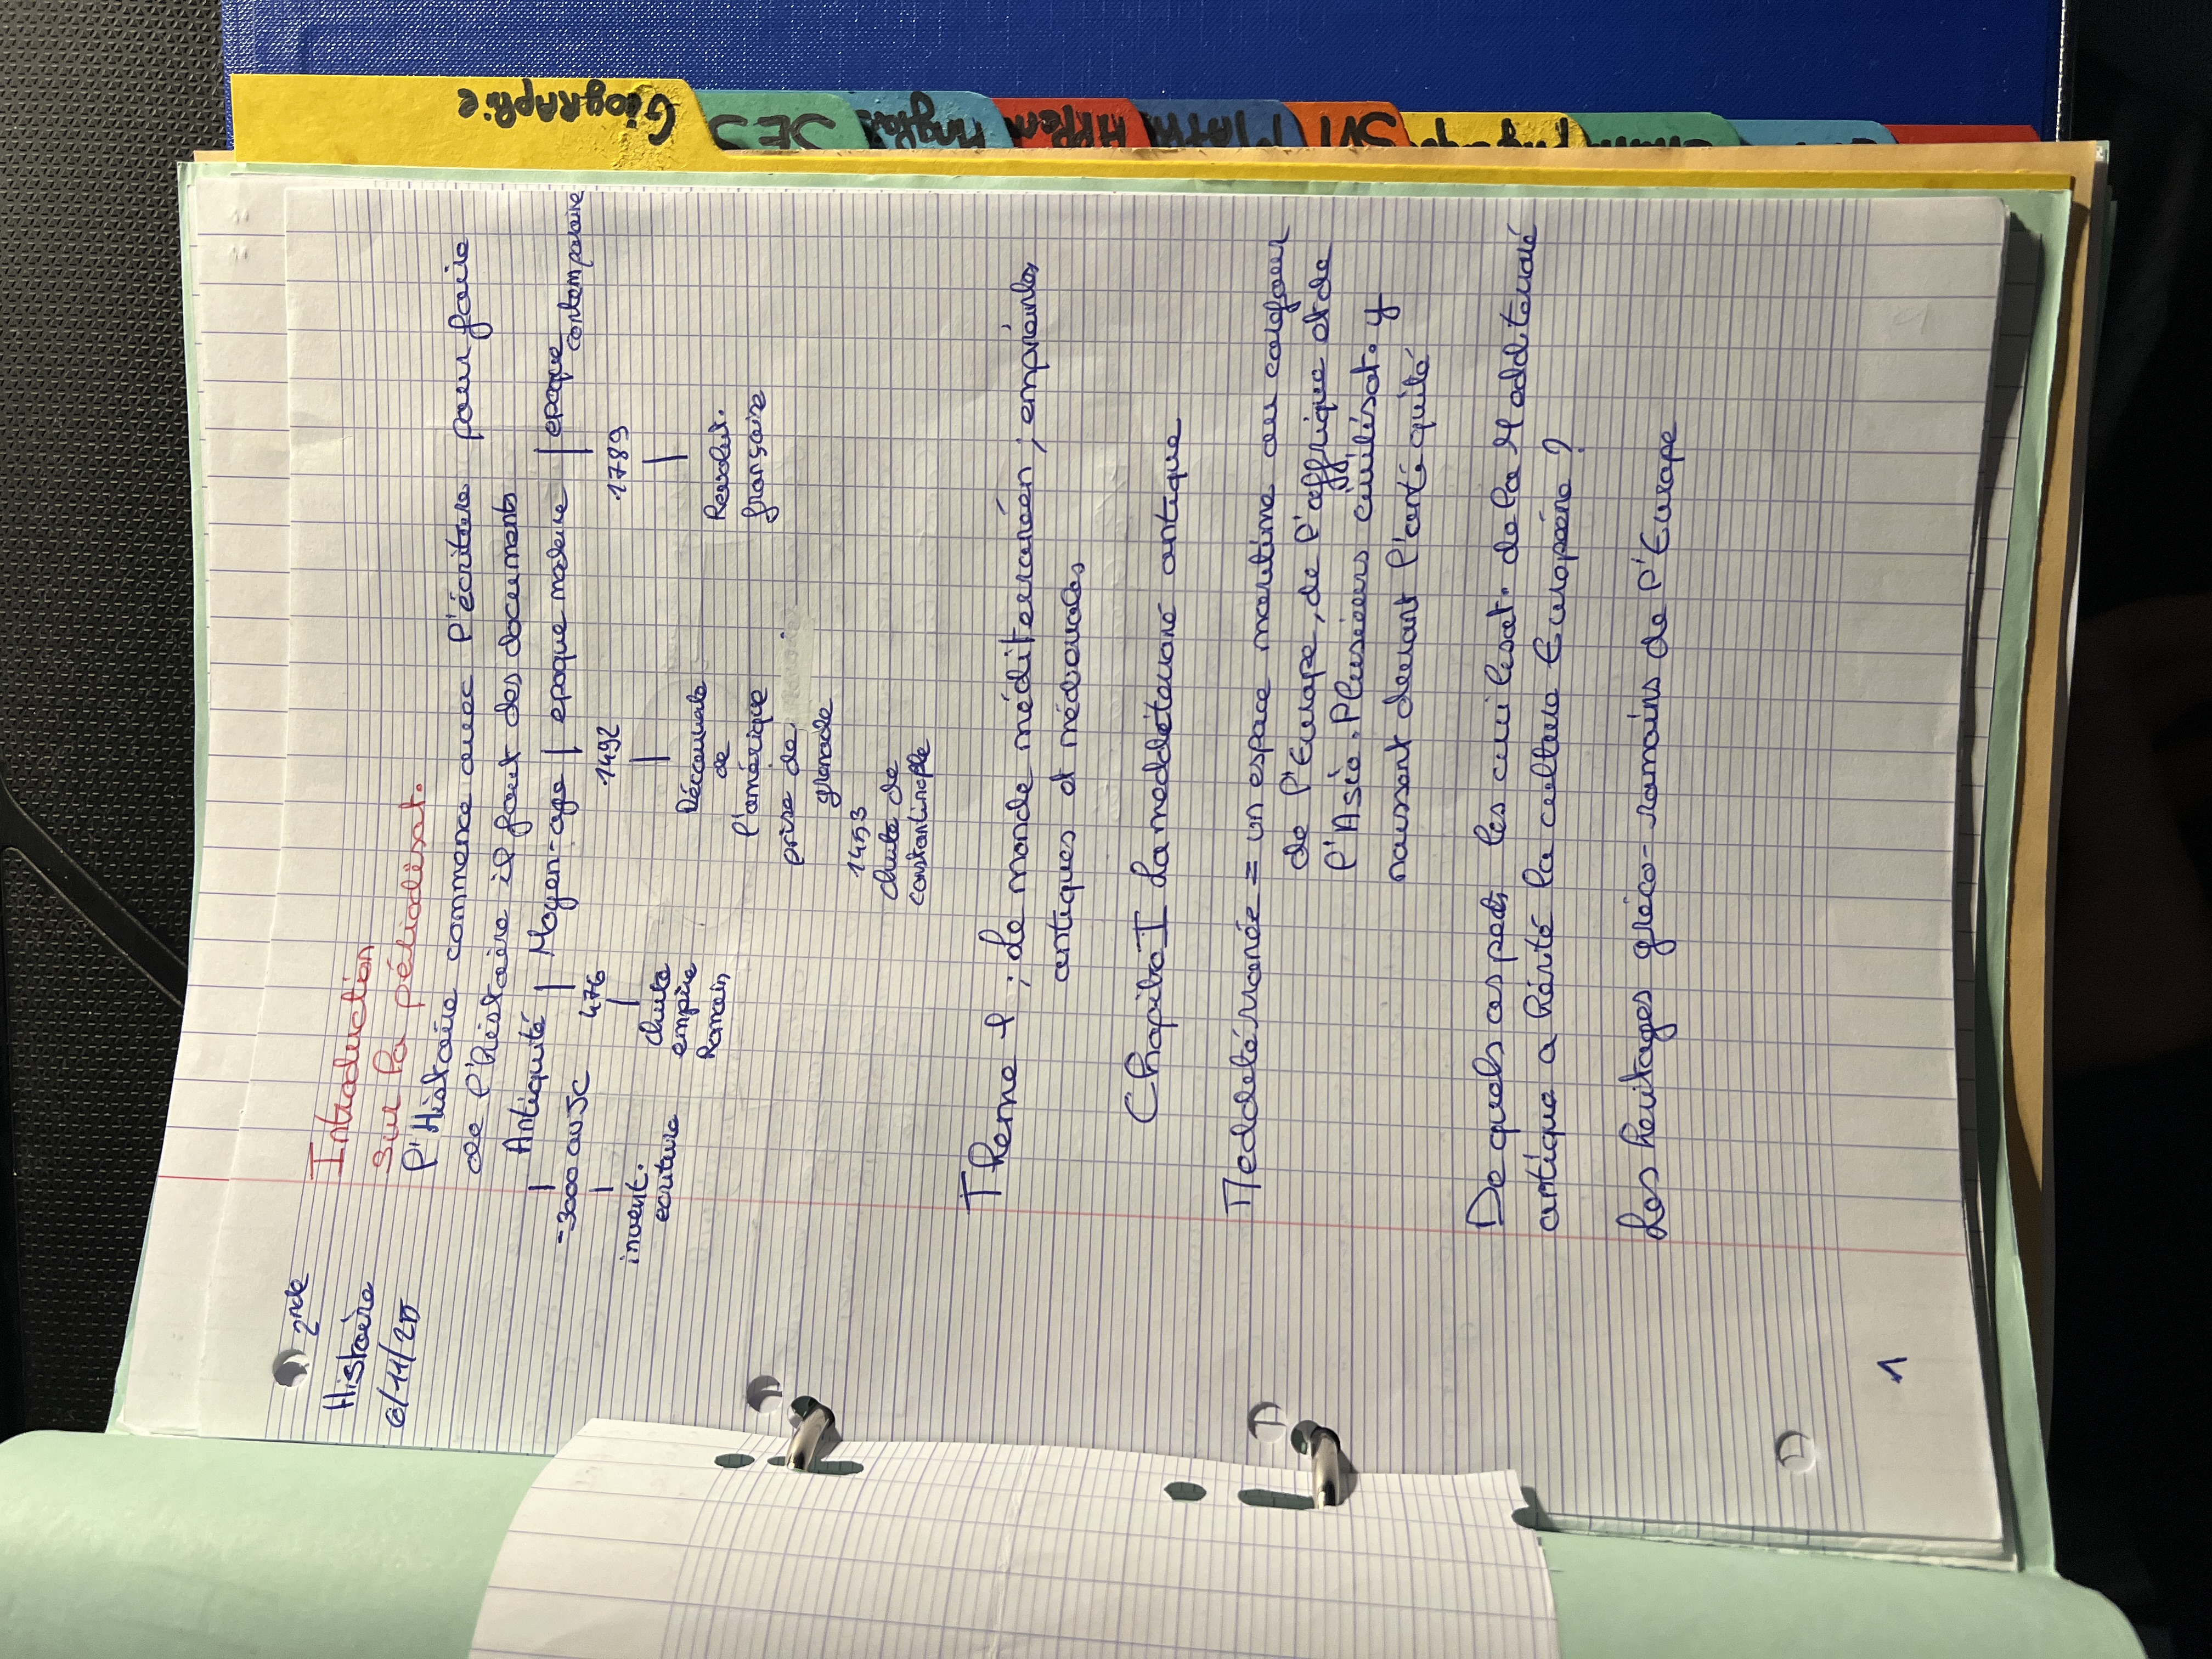 2nde
Histoire
Introduction
sur la périodisat.
l'Histoire commence avec l'écriture pour faire
de l'histoire il faut des documents
Antiquité | Moyen-age | epoque moderne | epoque contemporaine
-3000 av JC 476 1492 1789
invent. ecriture
chute empire Romain
Découverte de l'amérique
prise de grenade
1453
chute de constantinople
Revolut. française
Theme 1 : Le monde méditerranéen, empreintes
antiques et médievales
Chapitre I La meddéterrané antique
Meddetérranée = un espace maritime au carefour
de l'Europe, de l'affrique et de
l'Asie. Plusieurs civilisat. y
naissent durant l'antiquité
De quels aspects les civilisat. de la Medditerrané
antique a hérité la culture Européene ?
Les heritages gréco-romains de l'Europe
1
Géographie
SES
Anglais
MATH
SVT